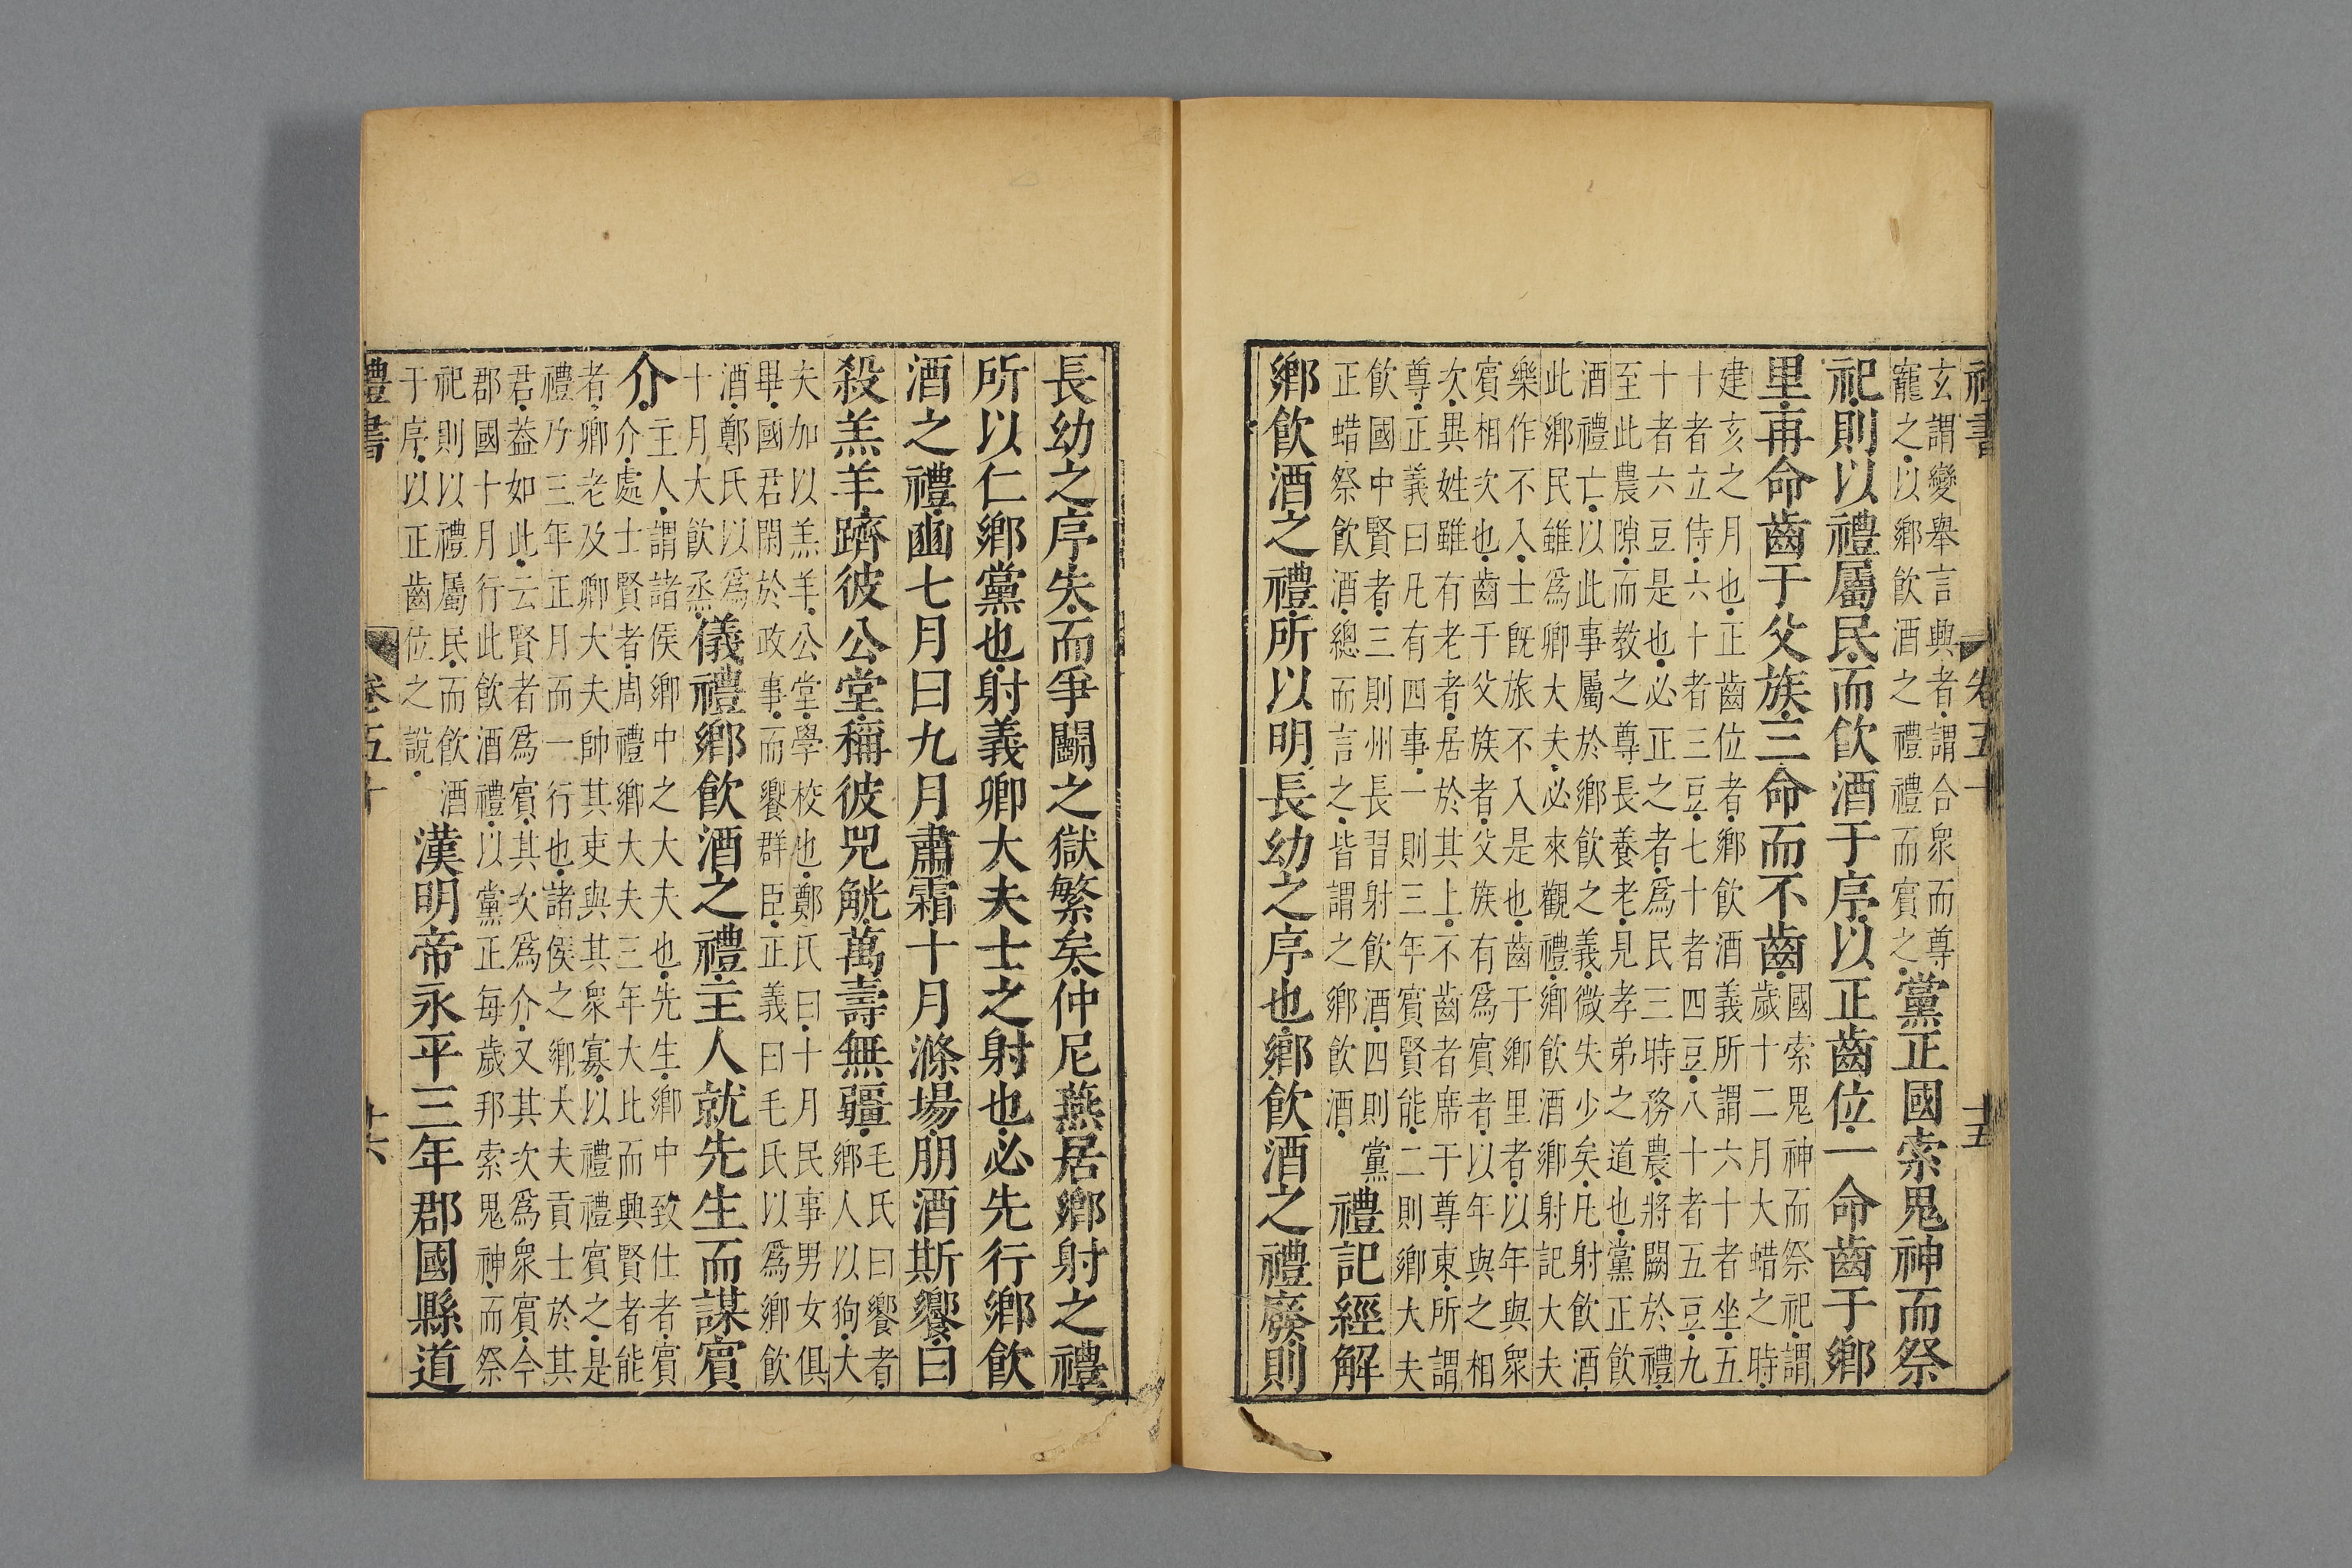 禮書 卷五十 十五
玄謂變舉言興者謂合衆而尊
寵之以鄉飲酒之禮禮而賓之
黨正國索鬼神而祭
祀則以禮屬民而飲酒于序以正齒位一命齒于鄉
里再命齒于父族三命而不齒
國索鬼神而祭祀謂
歲十二月大蜡之時
建亥之月也正齒位者鄉飲酒義所謂六十者坐五
十者立侍六十者三豆七十者四豆八十者五豆九
十者六豆是也必正之者爲民三時務農將闕於禮
至此農隙而教之尊長養老見孝弟之道也黨正飲
酒禮亡以此事屬於鄉飲之義微失少矣凡射飲酒
此鄉民雖爲卿大夫必來觀禮鄉飲酒鄉射記大夫
樂作不入士旣旅不入是也齒于鄉里者以年與衆
賓相次也齒于父族者父族有爲賓者以年與之相
次異姓雖有老者居於其上不齒者席于尊東所謂
尊正義曰凡有四事一則三年賓賢能二則鄉大夫
飲國中賢者三則州長習射飲酒四則黨
正蜡祭飲酒總而言之皆謂之鄉飲酒
禮記經解
鄉飲酒之禮所以明長幼之序也鄉飲酒之禮廢則
長幼之序失而爭鬭之獄繁矣仲尼燕居鄉射之禮
所以仁鄉黨也射義卿大夫士之射也必先行鄉飲
酒之禮豳七月曰九月肅霜十月滌場朋酒斯饗曰
殺羔羊躋彼公堂稱彼兕觥萬壽無疆
毛氏曰饗者
鄉人以狗大
夫加以羔羊公堂學校也鄭氏曰十月民事男女俱
畢國君閒於政事而饗群臣正義曰毛氏以爲鄉飲
酒鄭氏以爲
十月大飲烝
儀禮鄉飲酒之禮主人就先生而謀賓
介
主人謂諸侯鄉中之大夫也先生鄉中致仕者賓
介處士賢者周禮鄉大夫三年大比而興賢者能
者卿老及卿大夫帥其吏與其衆寡以禮禮賓之是
禮乃三年正月而一行也諸侯之鄉大夫貢士於其
君葢如此云賢者爲賓其次爲介又其次爲衆賓今
郡國十月行此飲酒禮以黨正每歲邦索鬼神而祭
祀則以禮屬民而飲酒
于序以正齒位之說
漢明帝永平三年郡國縣道
禮書 卷五十 十六